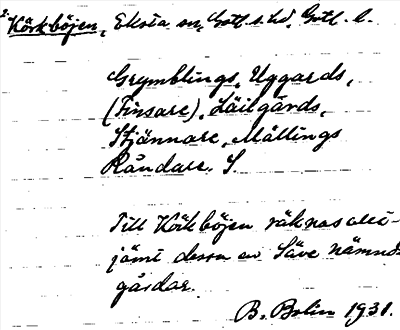 2. Körkböjen, Eksta sn, Gotl. s. hd, Gotl. l.
Grymblings, Uggards,
(Finsare), Läilgårds,
Stjännare, Mällings
Råndare. S.
Till Körkböjen räknas allt-
jämt dessa av Säve nämnda
gårdar.
B. Bolin 1931.